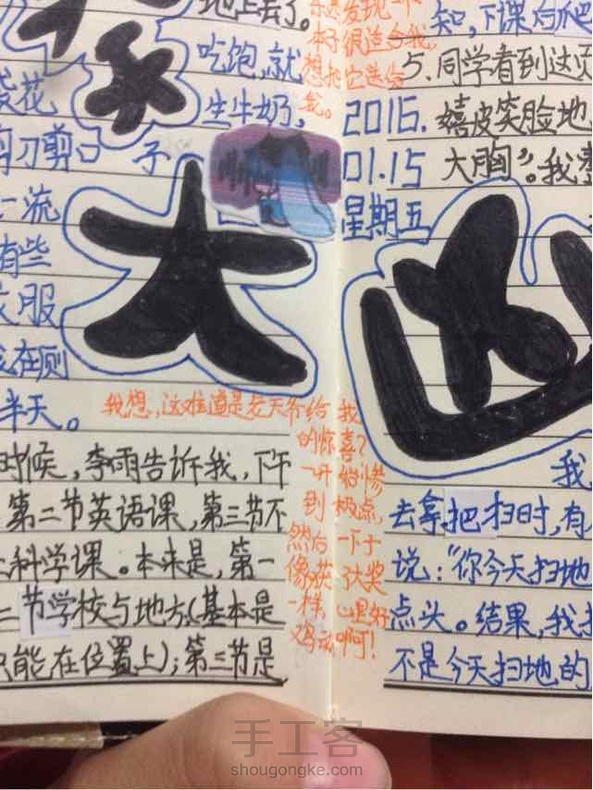 地上去了。
吃饱,就
袋花
生牛奶。
剪刀剪口
子
一流
有些
衣服
大
半天。
我想,这难道是老天爷给我
的惊喜?
一开始惨
到极点,
然后一下子
像获了大奖
一样,心里好
鸡动啊!
时候,李雨告诉我,下午
第二节英语课,第三节不
上科学课。本来是,第一
二节学校与地方(基本是
只能在位置上);第三节是
发现一个
本子很适合我,
想把它送给
我。
知,下课后爬
5.同学看到这页
2016.
嬉皮笑脸地
01.15
大胸”。我
星期五
凶
我
去拿把扫时,有
说:“你今天扫地
点头。结果,我
不是今天扫地的
手工客
shougongke.com